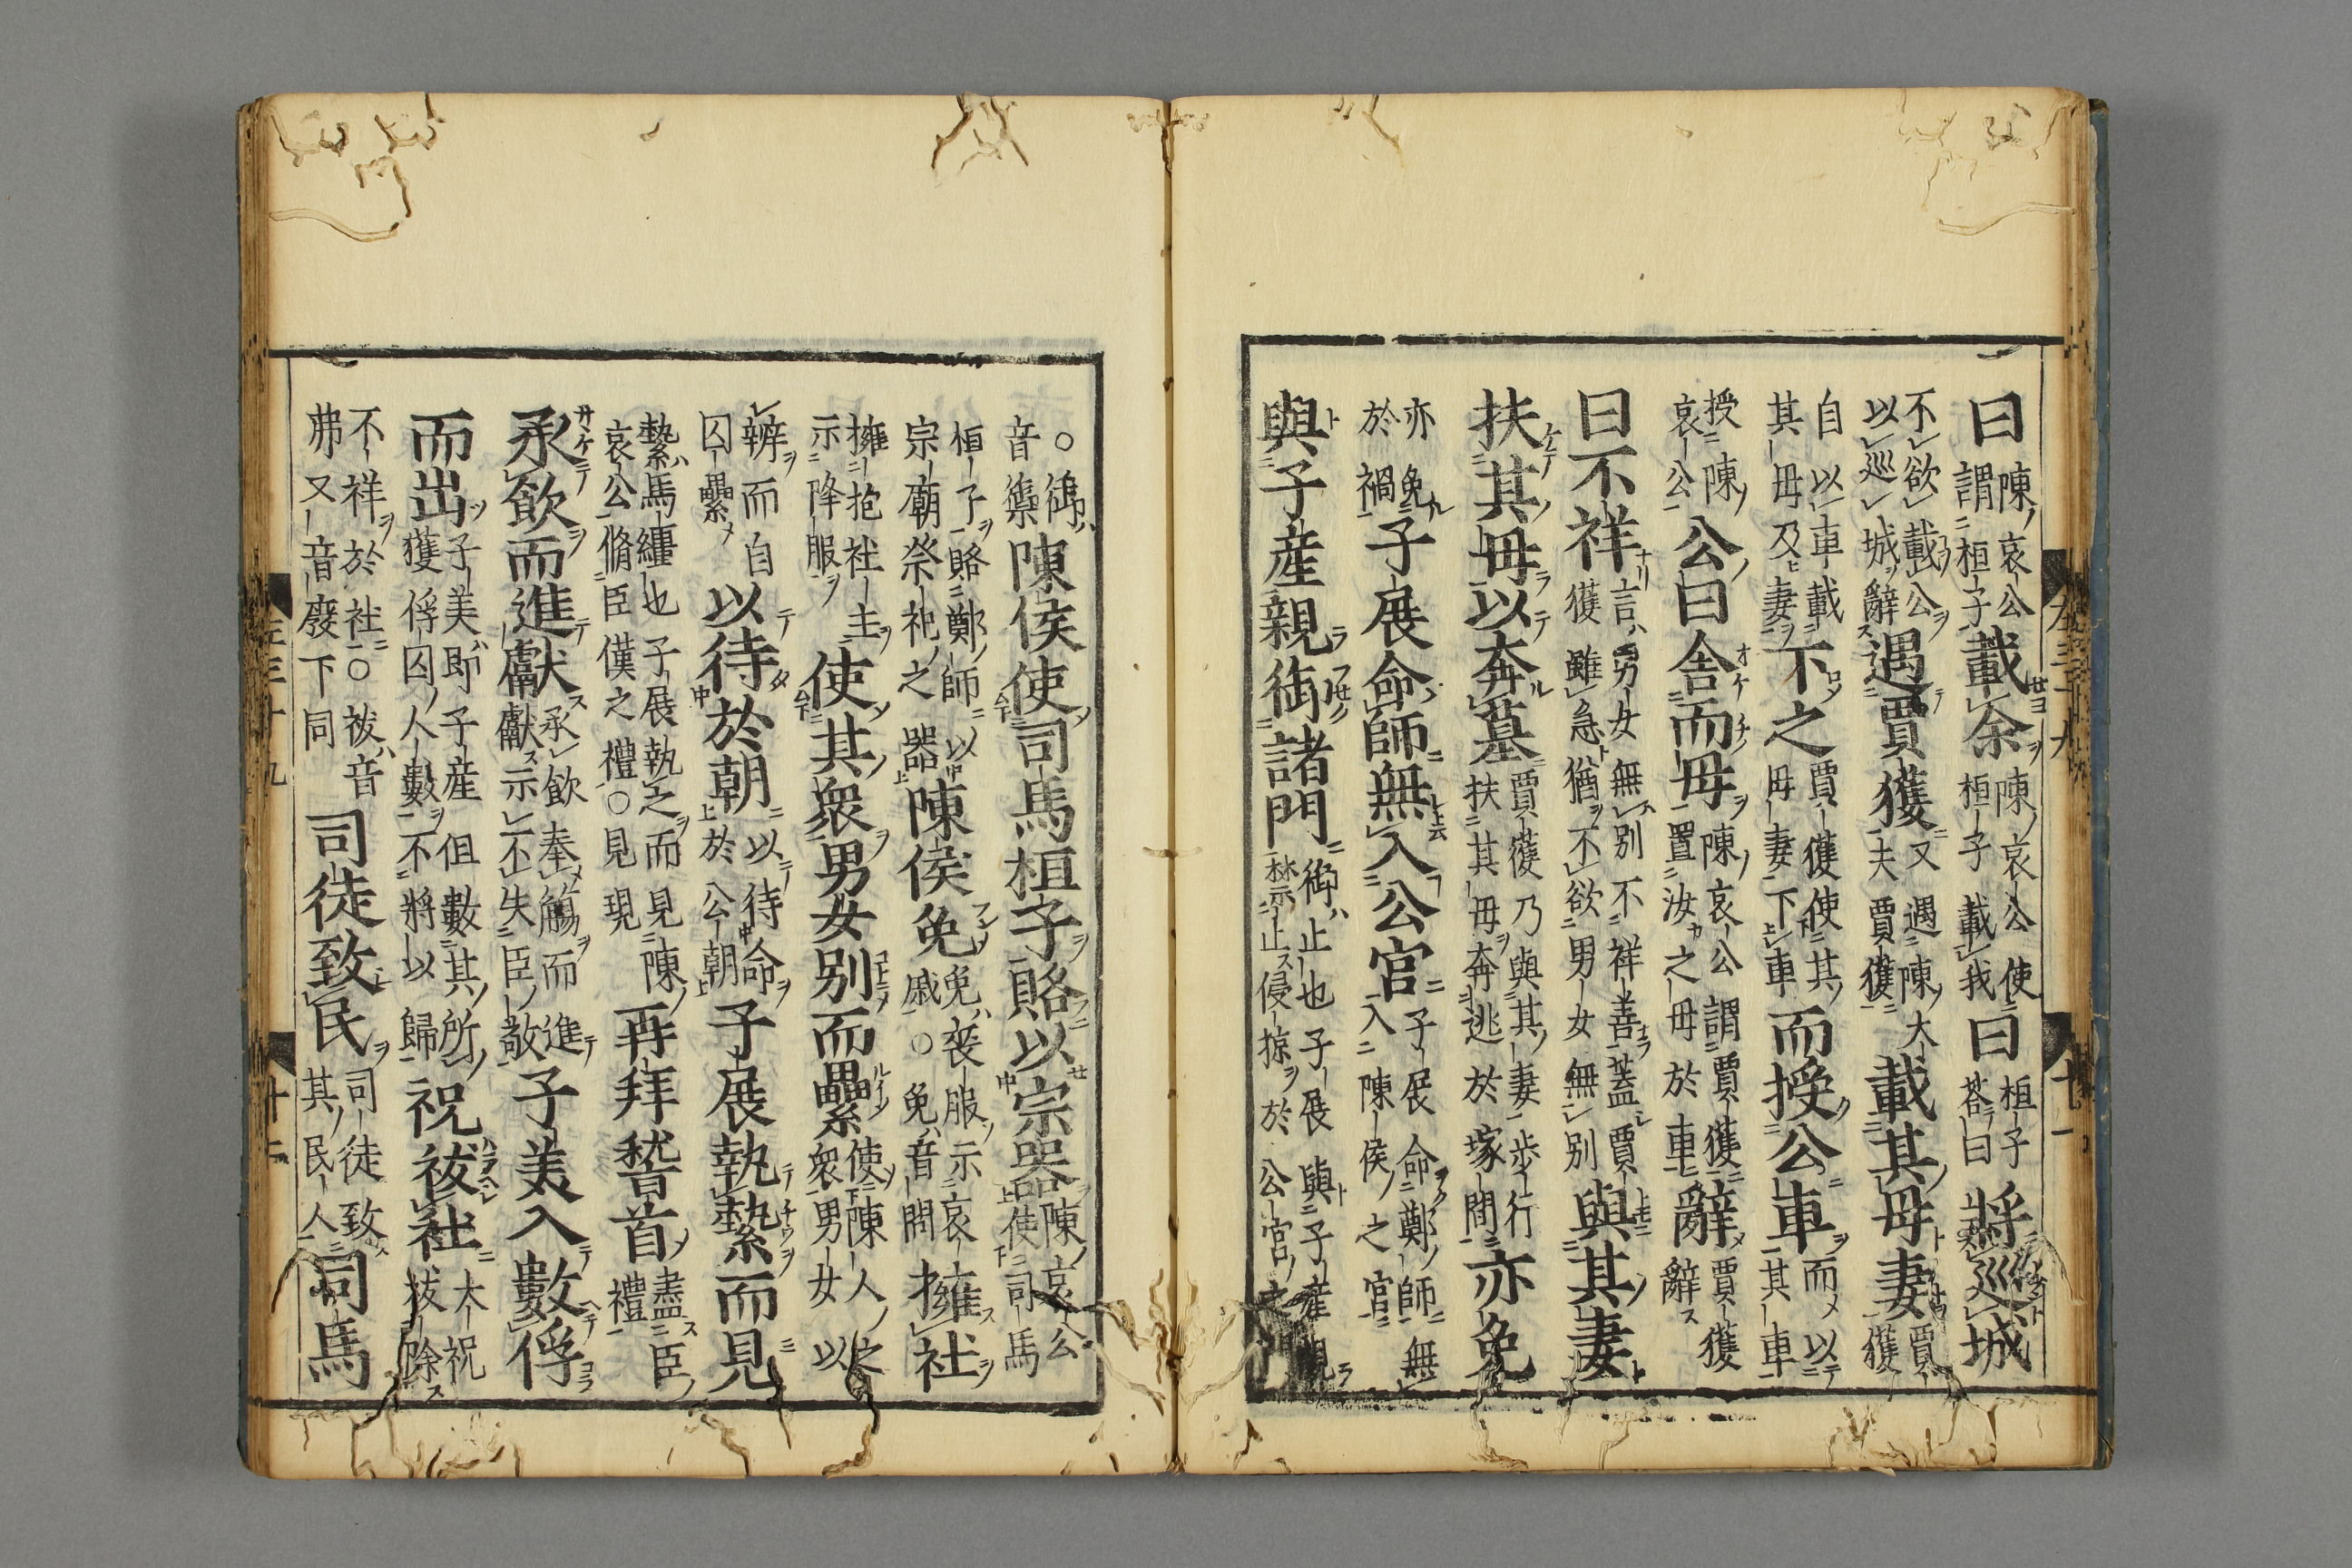 曰陳哀公謂桓子載余陳哀公使桓子載我曰桓子荅曰將巡城
不欲載公以巡城辭遇賈獲又遇陳大夫賈獲載其母妻賈獲
自以車載其母及妻下之賈獲使其母妻下車而授公車而以其車
授陳哀公公曰舍而母陳哀公謂賈獲置汝之母於車辭賈獲辭
曰不祥言男女無別不祥善蓋賈獲雖急猶不欲男女無別與其妻
扶其母以奔墓賈獲乃與其妻步行扶其母奔逃於塚間亦免
亦免於禍子展命師無入公宮子展命鄭師無入陳侯之宮
與子産親御諸門御止也子展與子産親禁止侵掠於公宮之門
○御音禦陳侯使司馬桓子賂以宗器陳哀公使司馬
桓子賂鄭師以宗廟祭祀之器陳侯免免喪服示哀戚○免音問擁社
擁抱社主示降服使其衆男女別而纍使陳人之衆男女以
辨而自囚纍以待於朝以待命於公朝子展執縶而見
縶馬纆也子展執之而見陳哀公脩臣僕之禮○見現再拜稽首盡臣禮
承飲而進獻承飲奉觴而進獻示不失臣敬子美入數俘
而出子美即子産但數其所獲俘囚人數不將以歸祝祓社大祝祓除
不祥於社○祓音弗又音廢下同司徒致民司徒致其民人司馬